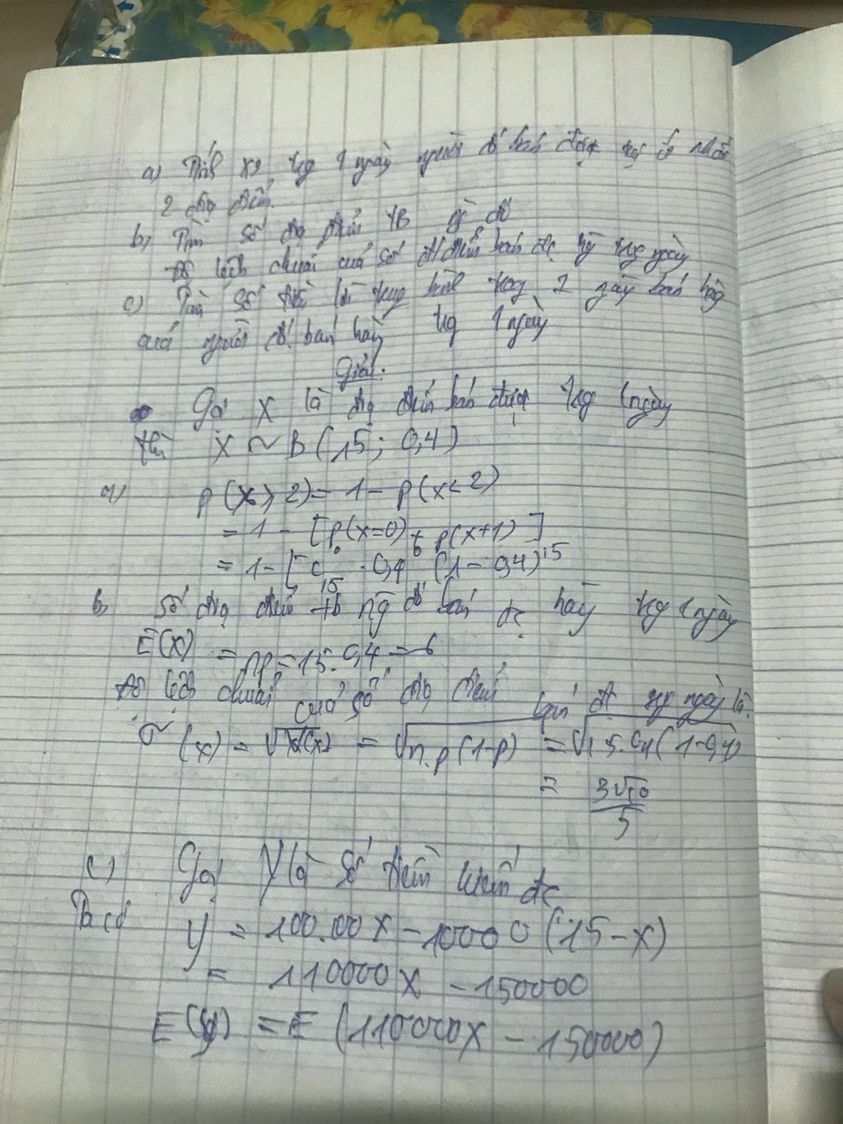 a) Tính xs trg 1 ngày người đó bán được tại ít nhất
2 địa điểm.
b) Tìm số địa điểm TB
độ lệch chuẩn của số đ điểm bán đc trg ngày
c) Tìm số tiền lãi trung bình trong bán hàng
của người đó bán hàng trg 1 ngày
Giải.
Gọi X là địa điểm bán được trg 1 ngày
thì X ~ B(15; 0,4)
a) P(X ≥ 2) = 1 - P(X < 2)
= 1 - [P(x=0) + P(x+1)]
= 1 - [C⁰₁₅ . 0,4⁰ (1-0,4)¹⁵
b, Số địa điểm tb ng đó bán đc hàng trg 1 ngày
E(X) = np = 15.0,4 = 6
Độ lệch chuẩn của số địa điểm bán đc trg ngày là
σ(x) = √V(x) = √n.p(1-p) = √15.0,4(1-0,4)
= 3√10/5
c) Gọi Y là số tiền kiếm đc
Ta có Y = 100.000X - 10000(15-X)
= 110000X - 150000
E(Y) = E(110000X - 150000)